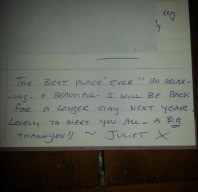 THE BEST PLACE EVER!!! SO RELAX-
ING + BEAUTIFUL. I WILL BE BACK
FOR A LONGER STAY NEXT YEAR.
LOVELY TO MEET YOU ALL - A BIG
THANKYOU!! ~ JULIET X